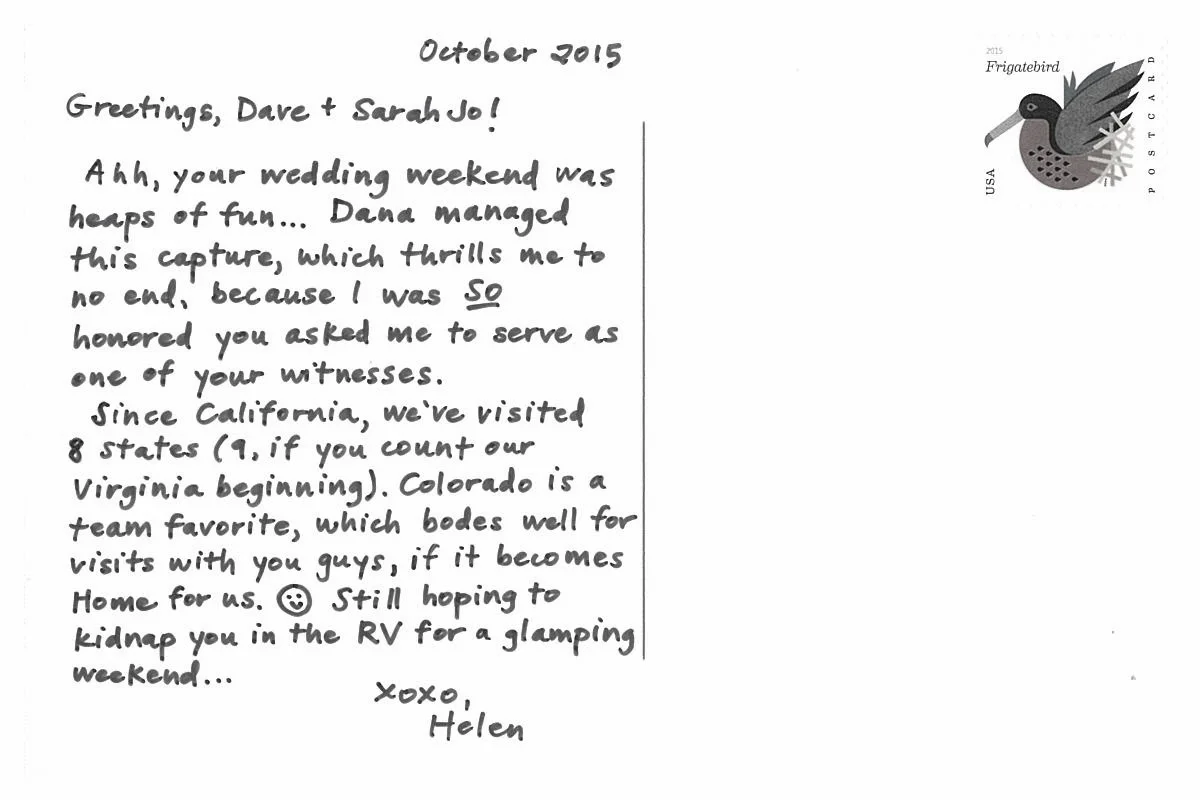 October 2015
Greetings, Dave + Sarah Jo!
Ahh, your wedding weekend was
heaps of fun... Dana managed
this capture, which thrills me to
no end, because I was SO
honored you asked me to serve as
one of your witnesses.
Since California, we've visited
8 states (9, if you count our
Virginia beginning). Colorado is a
team favorite, which bodes well for
visits with you guys, if it becomes
Home for us. ☺ Still hoping to
kidnap you in the RV for a glamping
weekend...
xoxo,
Helen
2015
Frigatebird
USA
POSTCARD